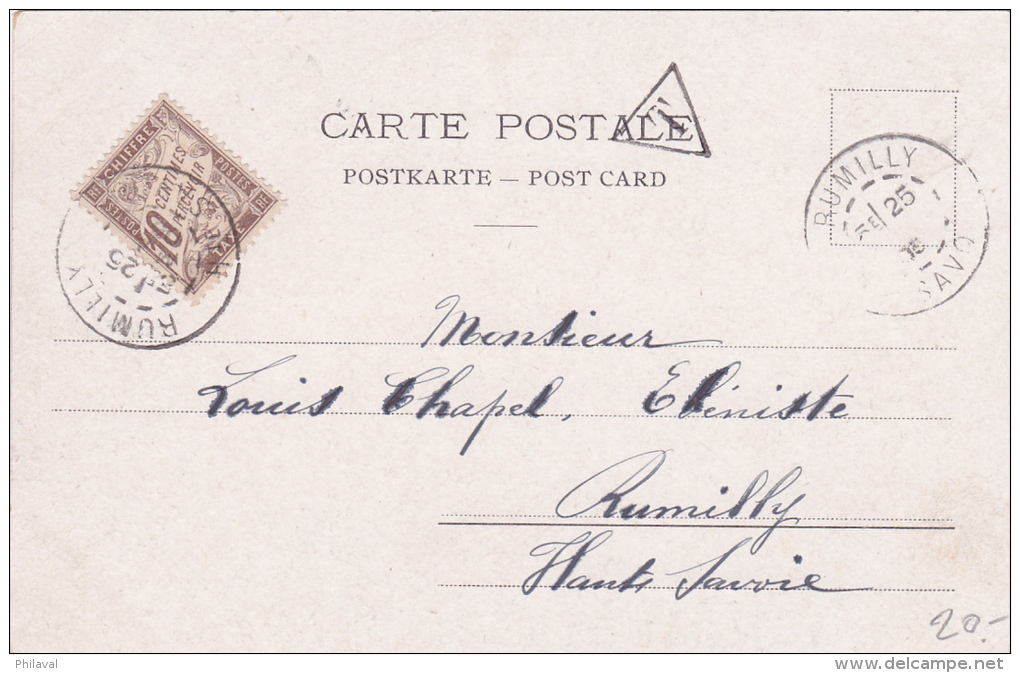 CARTE POSTALE
POSTKARTE — POST CARD
T
CHIFFRE TAXE
POSTES
RF
10
CENTIMES
A PERCEVOIR
RUMILLY
25
RUMILLY
25
SAVO
Monsieur
Louis Chapel, Ebéniste
Rumilly
Haute Savoie
20.-
Philaval
delcampe.net